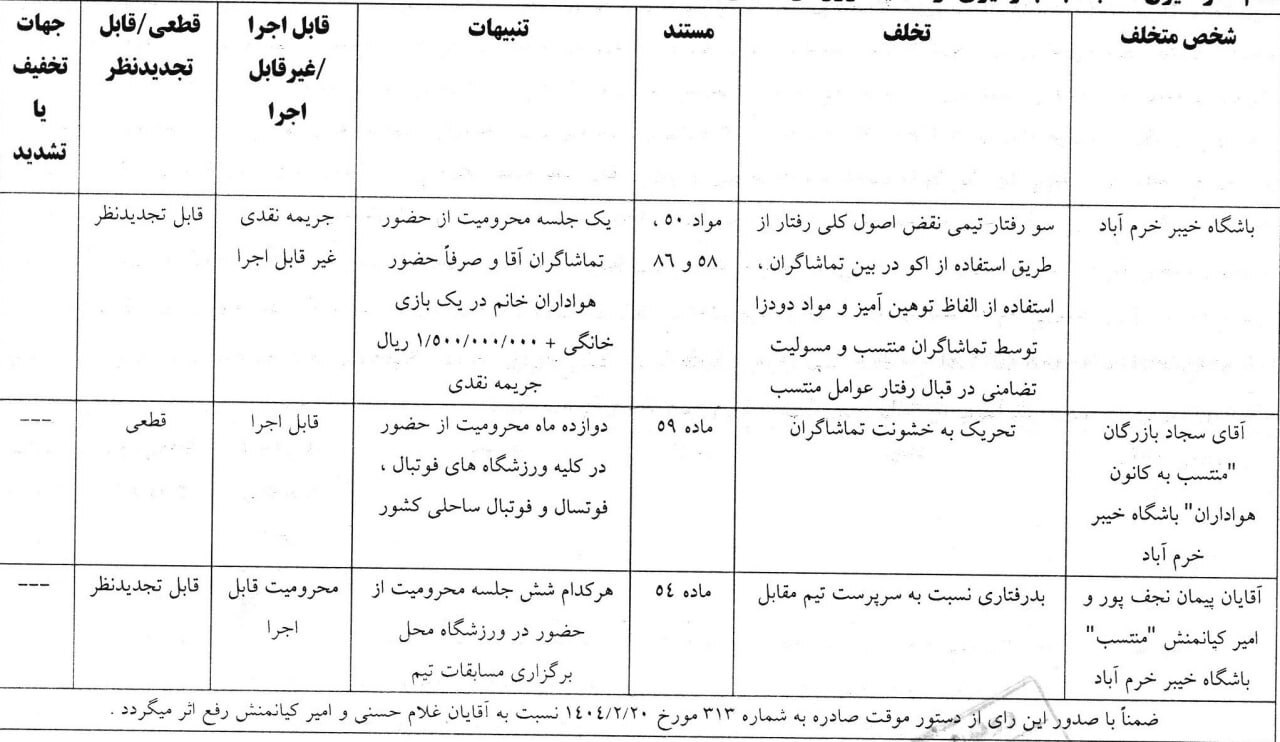 شخص متخلف
تخلف
مستند
تنبیهات
قابل اجرا
/غیرقابل
اجرا
قطعی/قابل
تجدیدنظر
جهات
تخفیف
یا
تشدید
باشگاه خیبر خرم آباد
سو رفتار تیمی نقض اصول کلی رفتار از
طریق استفاده از اکو در بین تماشاگران ،
استفاده از الفاظ توهین آمیز و مواد دودزا
توسط تماشاگران منتسب و مسولیت
تضامنی در قبال رفتار عوامل منتسب
مواد ۵۰ ،
۵۸ و ۸۶
یک جلسه محرومیت از حضور
تماشاگران آقا و صرفاً حضور
هواداران خانم در یک بازی
خانگی + ۱/۵۰۰/۰۰۰/۰۰۰ ریال
جریمه نقدی
جریمه نقدی
غیر قابل اجرا
قابل تجدیدنظر
آقای سجاد بازرگان
"منتسب به کانون
هواداران" باشگاه خیبر
خرم آباد
تحریک به خشونت تماشاگران
ماده ۵۹
دوازده ماه محرومیت از حضور
در کلیه ورزشگاه های فوتبال ،
فوتسال و فوتبال ساحلی کشور
قابل اجرا
قطعی
---
آقایان پیمان نجف پور و
امیر کیانمنش "منتسب"
باشگاه خیبر خرم آباد
بدرفتاری نسبت به سرپرست تیم مقابل
ماده ۵٤
هرکدام شش جلسه محرومیت از
حضور در ورزشگاه محل
برگزاری مسابقات تیم
محرومیت قابل
اجرا
قابل تجدیدنظر
---
ضمناً با صدور این رای از دستور موقت صادره به شماره ۳۱۳ مورخ ۱٤۰٤/۲/۲۰ نسبت به آقایان غلام حسنی و امیر کیانمنش رفع اثر میگردد .